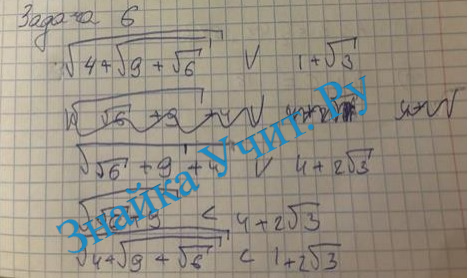 Задача 6
√(4+√(9+√6)) V 1+√3
√(√6+9)+4 V 4+2√3
√(√6+9) < 4+2√3
√(4+√(9+√6)) < 1+2√3
Знайка Учит. Ру